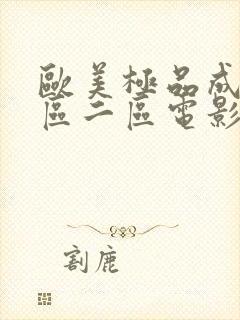 歐美極品成
區二區電影
割鹿